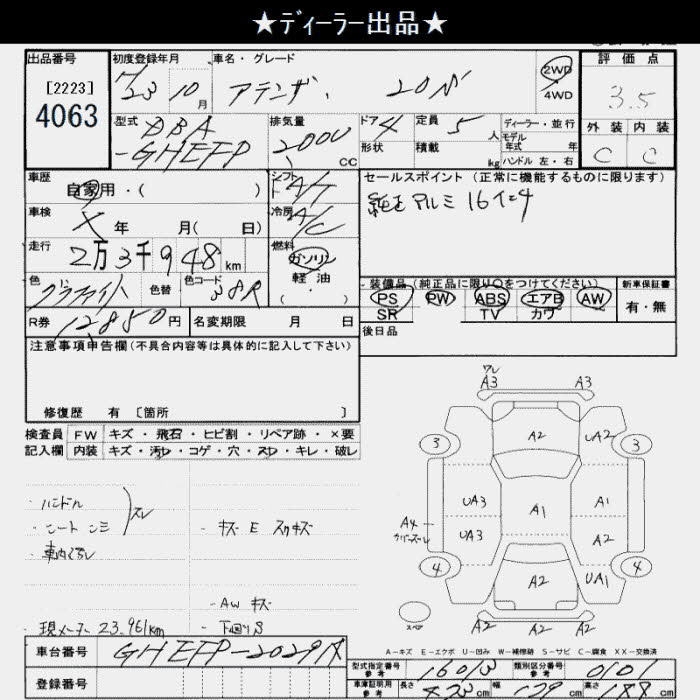 ★ディーラー出品★
出品番号
[2223]
4063
初度登録年月
H23 10月
車名・グレード
アテンザ. 20S
2WD
4WD
評価点
3.5
外装 内装
C C
型式
DBA
-GHEFP
排気量
2000 CC
ドア 4
形状
定員 5 人
積載 kg
ディーラー・並行
モデル
年式 年
ハンドル 左・右
車歴
自家用・( )
シフト
A/T
セールスポイント (正常に機能するものに限ります)
純正アルミ 16インチ
車検
X 年 月( 日)
冷房
A/C
走行
2万3千948km
燃料
ガソリン
軽油
・( )
色
グラファイト
色替
色コード
38R
装備品(純正品に限り○をつけてください)
PS PW ABS エアB AW
SR TV カワ
新車保証書
有・無
R券 12,850円
名変期限 月 日
後日品
注意事項申告欄(不具合内容等は具体的に記入して下さい)
修復歴 有 [箇所 ]
検査員
記入欄
FW キズ・飛石・ヒビ割・リペア跡・×要
内装 キズ・汚れ・コゲ・穴・スレ・キレ・破レ
・ハンドル
・シート シミ
スレ
・車内スレ
・キズ E スリキズ
・AW キズ
・現メーター 23.961km
・下廻りS
ワレ
A3 A3
3 3
A2 UA2
UA3 A1 A1
A4
カバースレ
UA3 A2
4 4
A2 UA1
スペア
A2 A2 A2
A-キズ E-エクボ U-凹み W-補修跡 S-サビ C-腐食 XX-交換済
車台番号 GHEFP-202918
登録番号
型式指定番号
参考
16013
類別区分番号
参考
0101
車庫証明用
参考
長さ cm
幅 179 cm
高さ cm